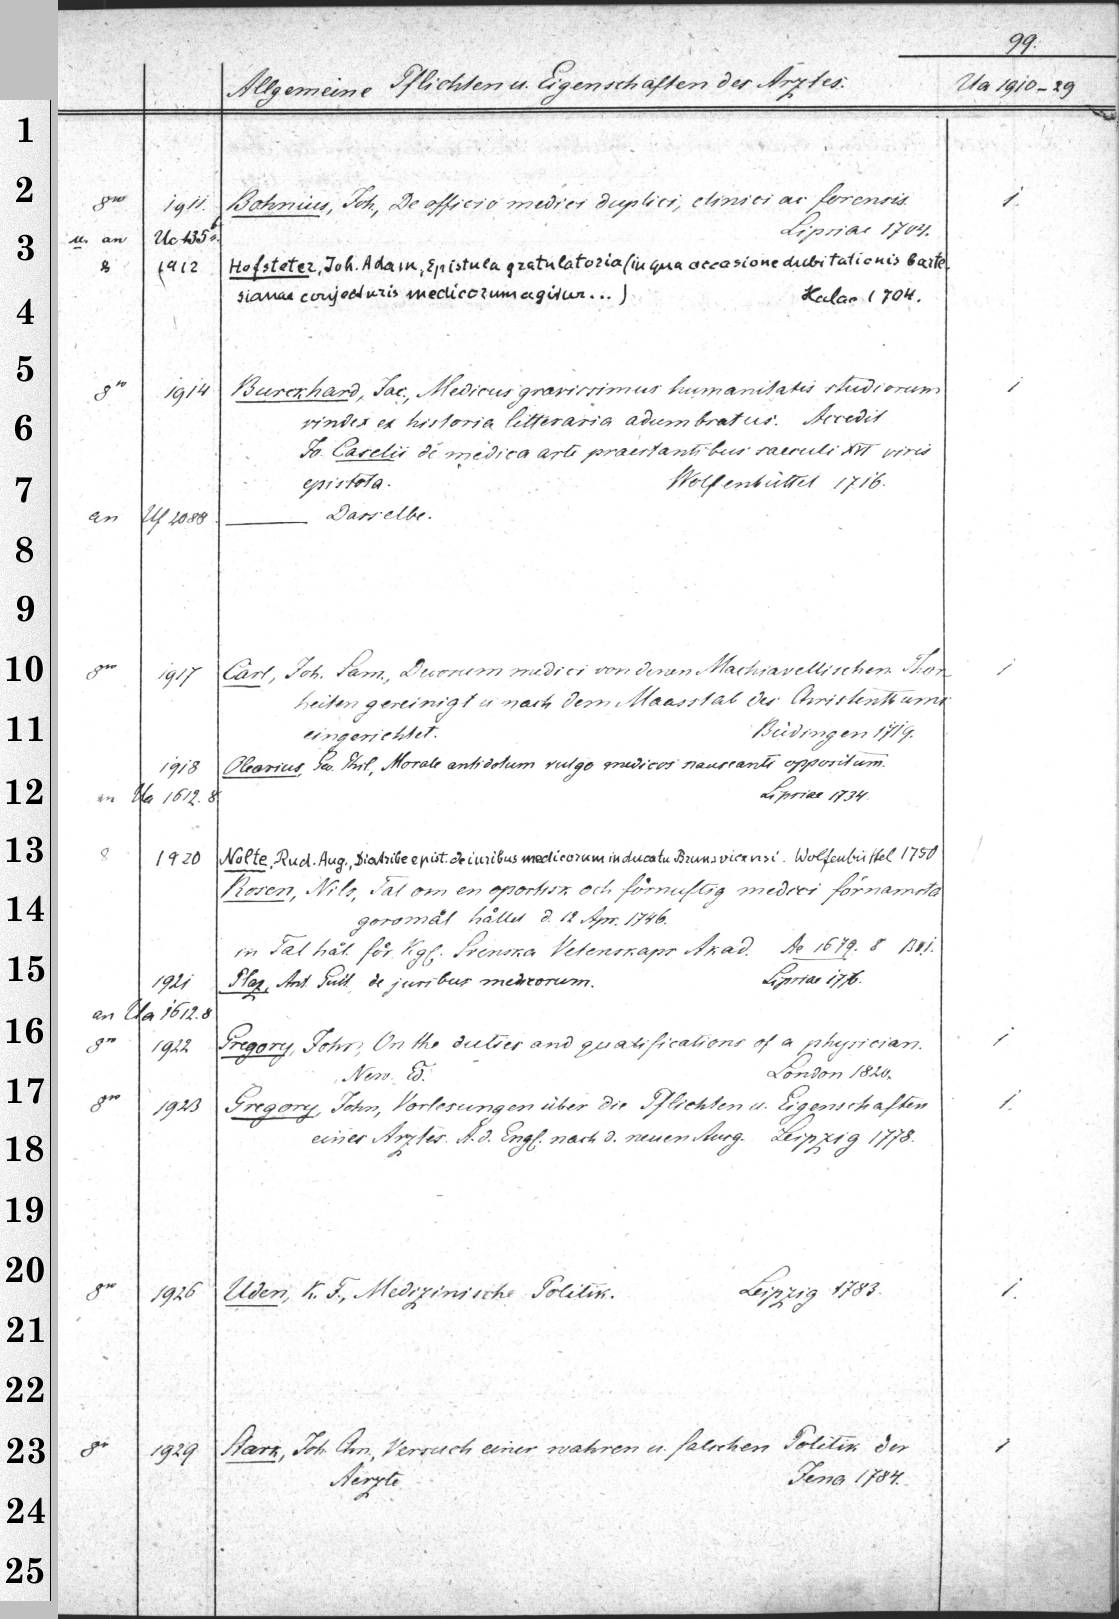 99.
Allgemeine Pflichten u. Eigenschaften des Arztes. Ua 1910-29
1
2
8vo 1911. Bohnius, Joh., De officio medici duplici, clinici ac forensis. 1.
Lipsiae 1704.
u. an Uc 435
3
8 1912 Hofsteter, Joh. Adam, Epistula gratulatoria (in qua occasione dubitationis Carte-
sianae conjecturis medicorum agitur...) Halae 1704.
4
5
8vo 1914 Burckhard, Jac., Medicus gravissimus humanitatis studiorum 1
6
vindex ex historia litteraria adumbratus. Accedit
Jo. Caselii de medica arte praestantibus saeculi XVI viris
7
epistola. Wolfenbüttel 1716.
an Uf 2088 Dasselbe.
8
9
10
8vo 1917 Carl, Joh. Sam., Decorum medici von denen Machiavellischen Thor- 1
heiten gereinigt u. nach dem Maasstab des Christenthums
11
eingerichtet. Büdingen 1719.
1918 Olearius, Geo. Phil., Morale antidotum vulgo medicos nauseanti oppositum.
12
an Ua 1612. 8. Lipsiae 1734.
13
8 1920 Nolte, Rud. Aug., Diatribe epist. de iuribus medicorum in ducatu Brunsvicensi. Wolfenbüttel 1750
Rosen, Nils, Tal om en oportisk och förnuftig medici förnamsta
14
goromål hållet d. 12 Apr. 1746.
in Tal hål. för Kgl. Svenska Vetenskaps Akad. Ae 1679. 8 Bd 1.
15
1921 Plaz, Ant. Guil. de juribus medicorum. Lipsiae 1776.
an Ua 1612. 8
16
8vo 1922 Gregory, John, On the duties and qualifications of a physician. 1
New. Ed. London 1820.
17
8vo 1923 Gregory, John, Vorlesungen über die Pflichten u. Eigenschaften 1.
18
eines Arztes. A. d. Engl. nach d. neuen Ausg. Leipzig 1778.
19
20
8vo 1926 Uden, K. F., Medizinische Politik. Leipzig 1783. 1.
21
22
23
8vo 1929 Stark, Joh. Chn., Versuch einer wahren u. falschen Politik der 1
Aerzte Jena 1784.
24
25